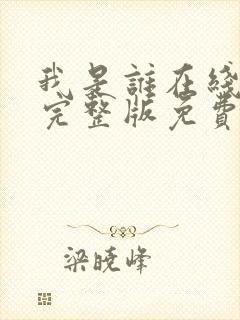 我是誰在綫
完整版免費
梁曉峰